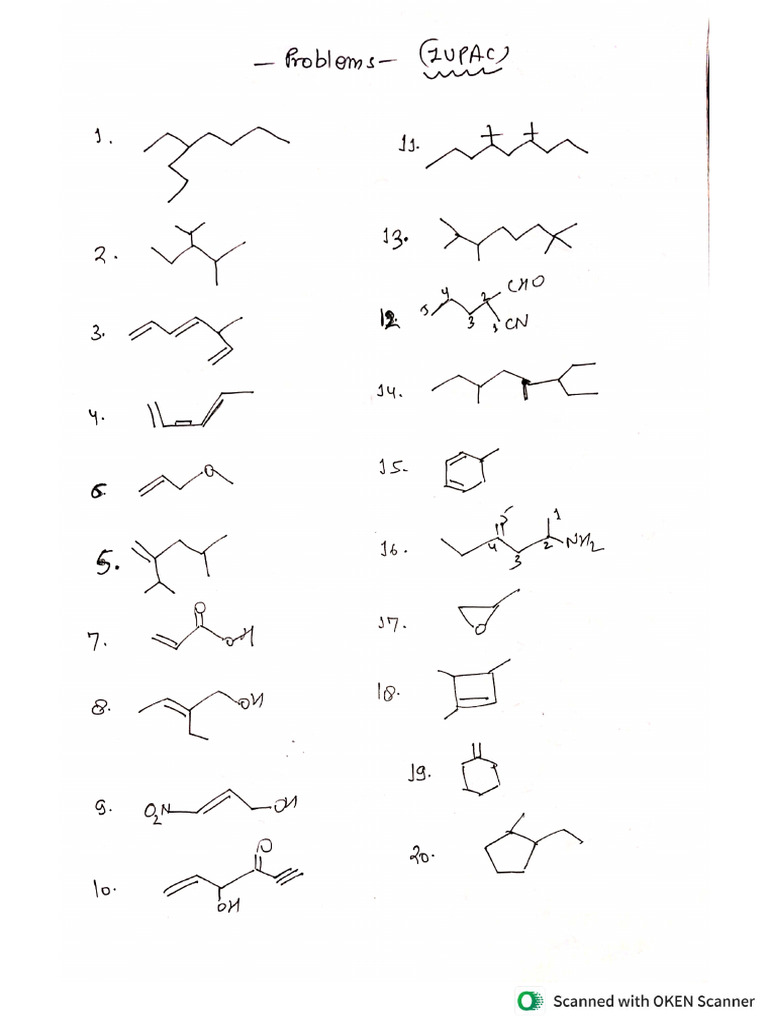 - Problems - (IUPAC)
1.
2.
3.
4.
6.
O
5.
7.
O
OH
8.
OH
9.
O2N
OH
10.
O
OH
11.
13.
12.
5
4
3
2
1
CHO
CN
14.
15.
16.
5
4
3
2
1
NH2
17.
O
18.
19.
20.
Scanned with OKEN Scanner